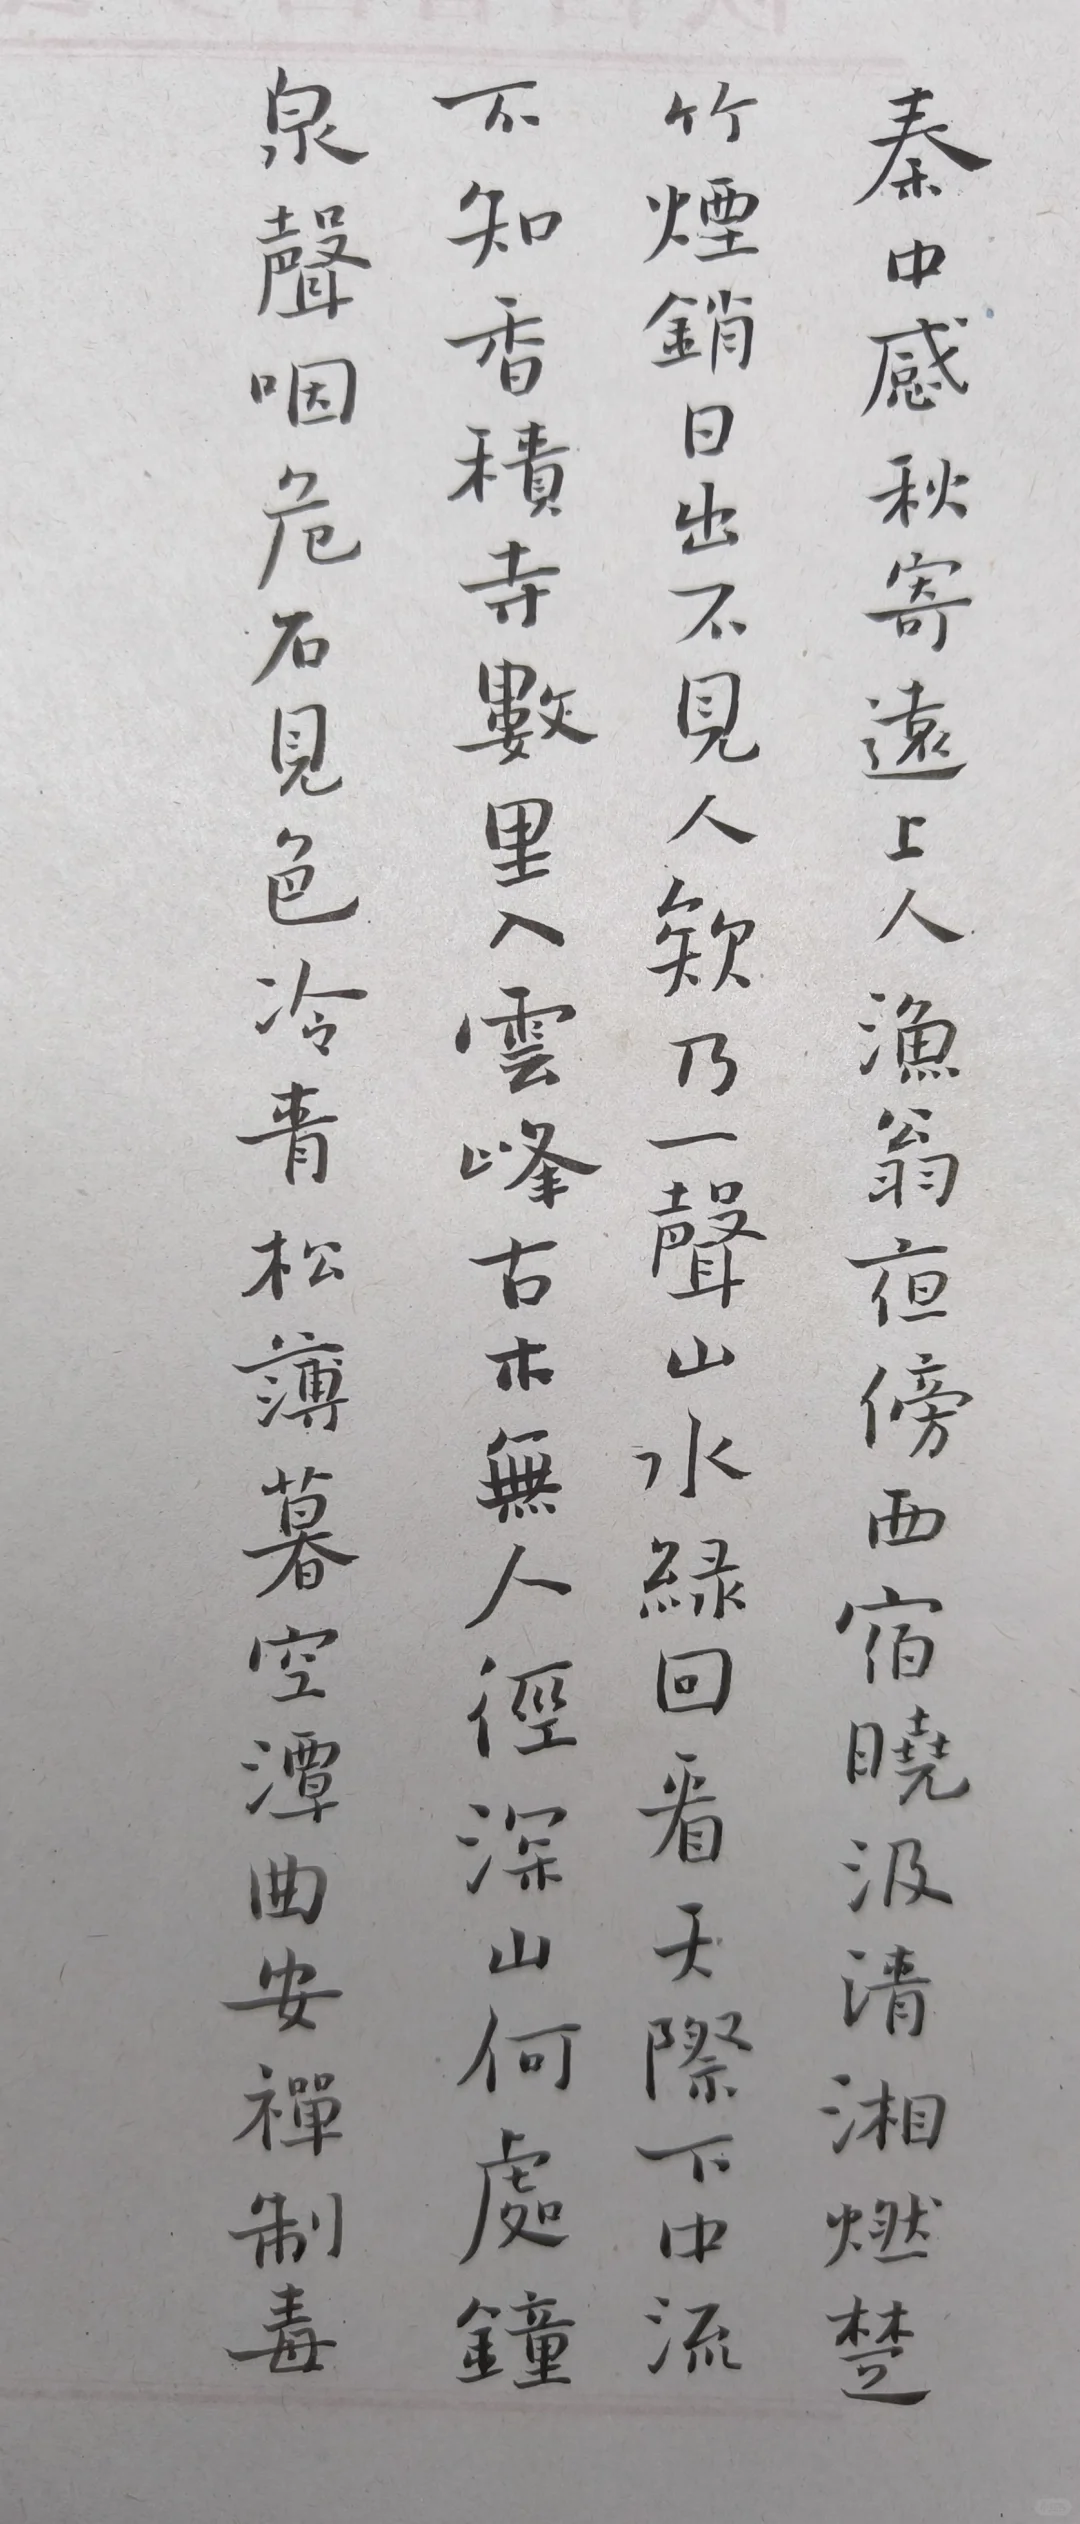 秦中感秋寄遠上人漁翁夜傍西宿曉汲清湘燃楚
竹煙銷日出不見人欸乃一聲山水緑回看天際下中流
不知香積寺數里入雲峰古木無人徑深山何處鐘
泉聲咽危石見色冷青松薄暮空潭曲安禪制毒